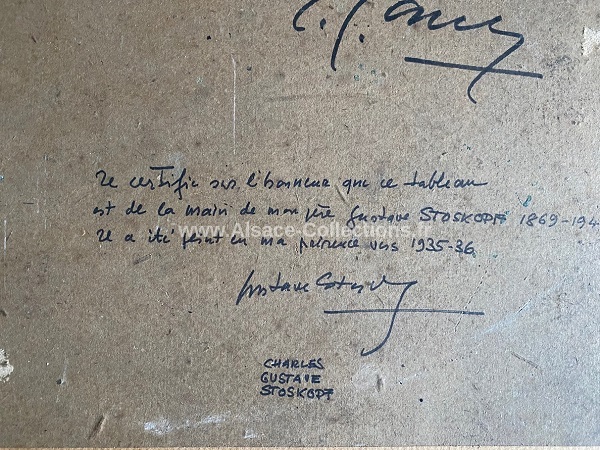 Je certifie sur l'honneur que ce tableau
est de la main de mon père Gustave STOSKOPF 1869-194
Il a été peint en ma présence vers 1935-36
www.Alsace-Collections.fr
CHARLES
GUSTAVE
STOSKOPF